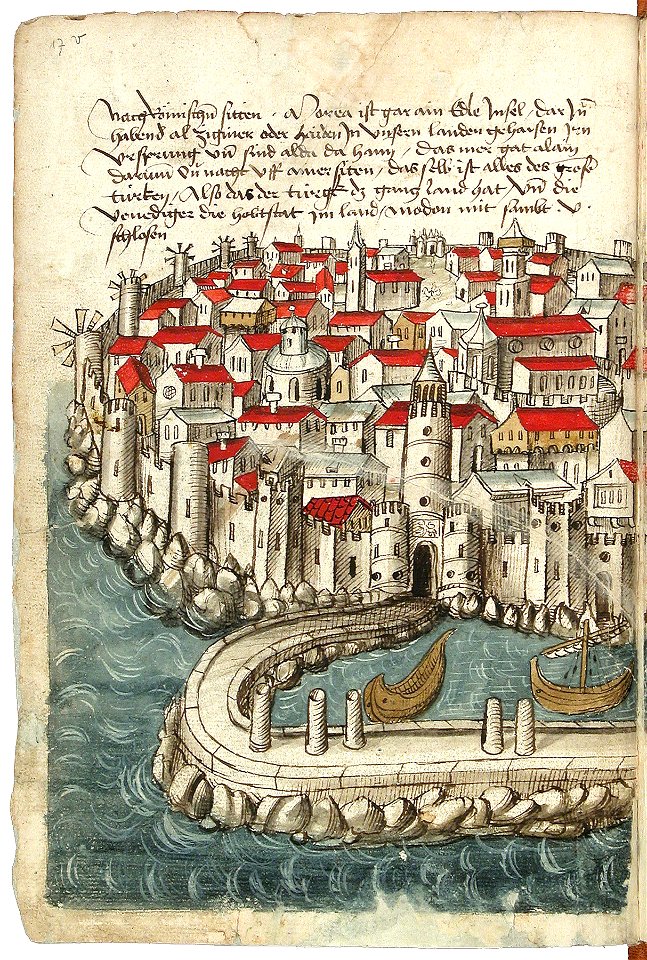 17 v
nach Römischen sitten . Morea ist gar ain Edle Insel, dar Jn̄
habend al Ziginer oder haiden Jn Unsern landen gehaisen Jrn
Ursprung Un̄ sind alda da haim, das mer gat alain
darum Un̄ nacht Uff ainer siten, das selb ist alles des grose
türken, Also das der türgk dz gantz land hat Un̄ die
Venediger die hobtstat Jm land, modon mit sambt . v .
schlosen